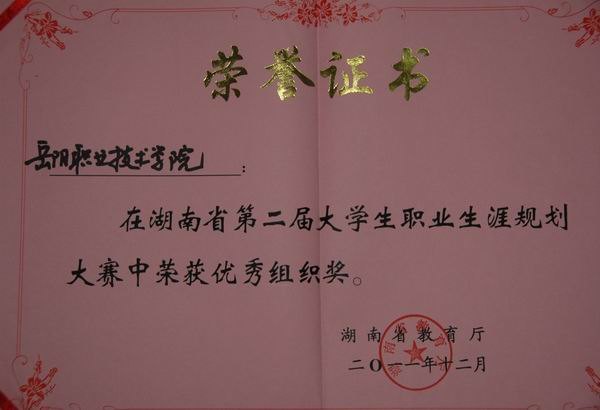 荣誉证书
岳阳职业技术学院：
在湖南省第二届大学生职业生涯规划
大赛中荣获优秀组织奖。
湖南省教育厅
二〇一一年十二月
湖南省教育厅